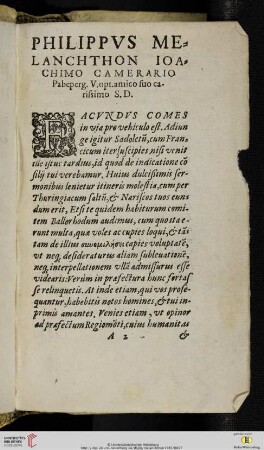 PHILIPPVS ME-
LANCHTHON IOA-
CHIMO CAMERARIO
Pabeperg. V. opt. amico suo ca-
rissimo S. D.
FACVNDVS COMES
in via pro vehiculo est. Adiun
ge igitur Sadoletũ, cum Fran-
cicum iter suscipies, nisi venit
tuus tardius, id quod de indicatione cõ
silij tui verebamur. Huius dulcissimis ser-
monibus lenietur itineris molestia, cum per
Thuringiacum saltũ, & Nariscos tuos eun-
dum erit, Etsi te quidem habiturum comi-
tem Ballerhodum audimus, cum quo tate-
runt multa, quæ voles accuples loqui, & tã-
tam de illius capies voluptatẽ,
ut neq; desideraturus aliam subleuationẽ,
neq; interpellationem vllã admissurus esse
videaris: Verùm in præfectura hunc fortas
se relinquetis. At inde etiam, qui vos prose-
quantur, habebitis notos homines, & tui in-
primis amantes. Venies etiam, vt opinor
ad præfectum Regiomõti, cuius humanitas
A 2 &
UNIVERSITÄTS-
BIBLIOTHEK
HEIDELBERG
© Universitätsbibliothek Heidelberg